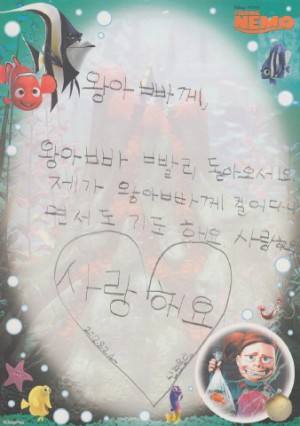 FINDING
NEMO
왕아빠께,
왕아빠 빨리 돌아오세요
제가 왕아빠께 걸어다니
면서도 기도 해요 사랑해요
사랑해요